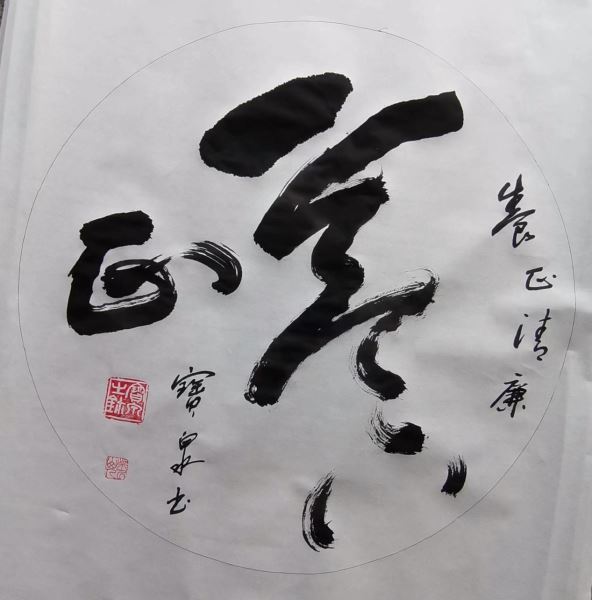 養正清廉
養正
寶泉书